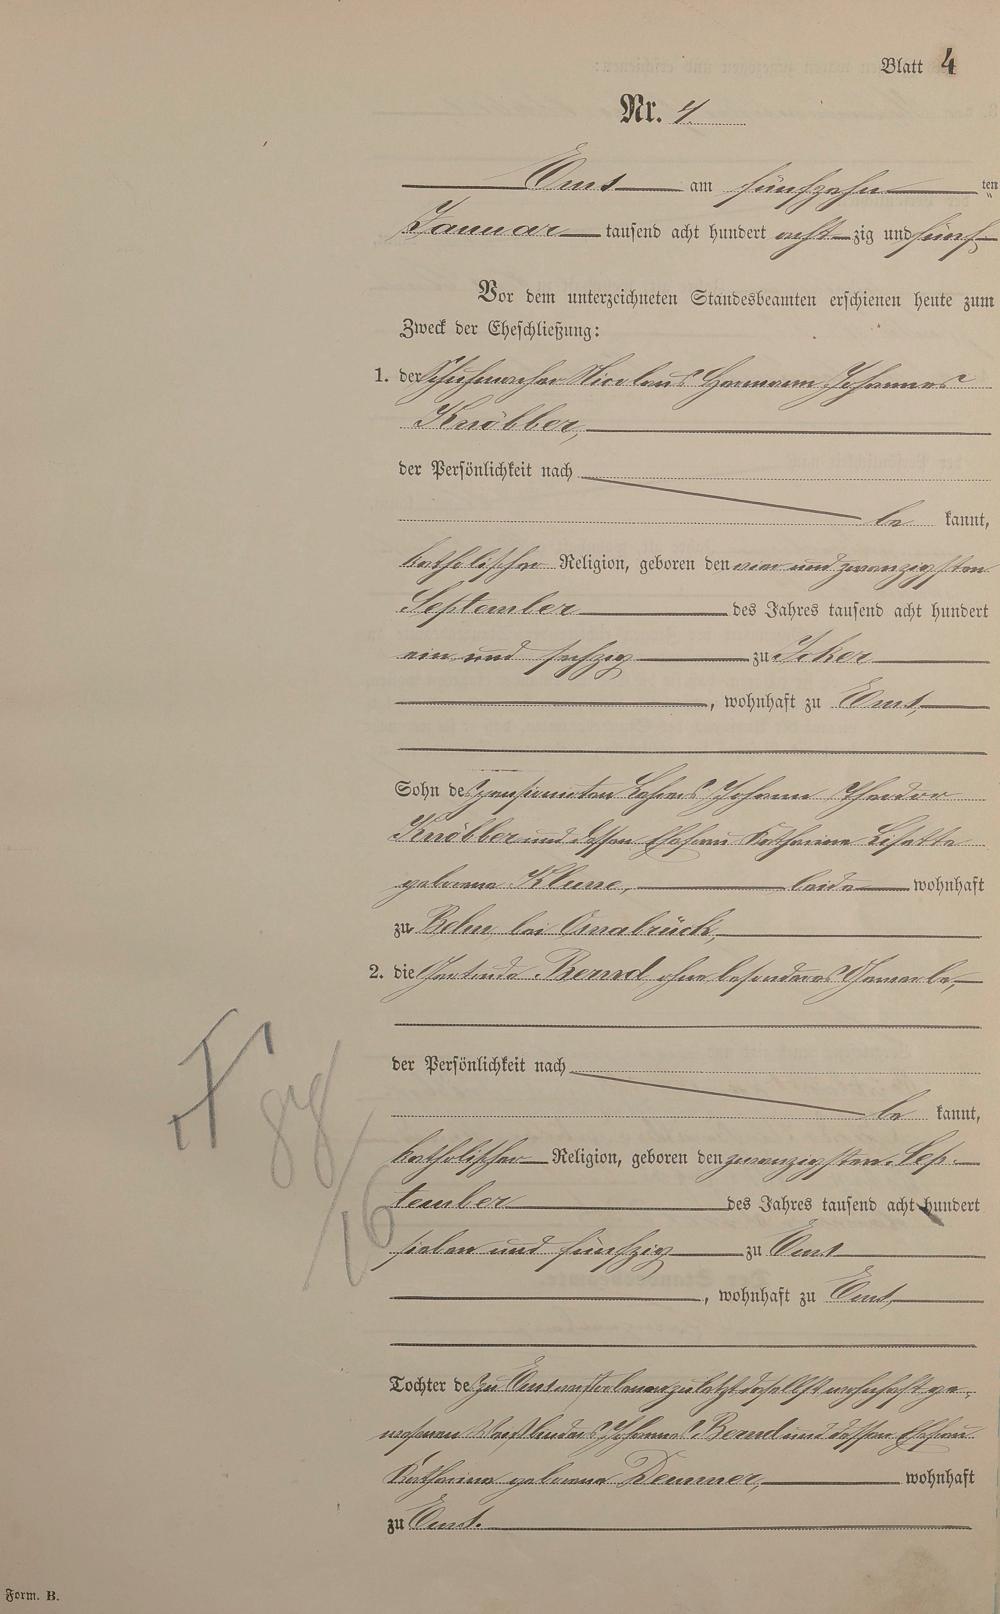 Blatt 4
Nr. 4.
Ems am fünfzehn ten
Januar tausend acht hundert acht zig und fünf
Vor dem unterzeichneten Standesbeamten erschienen heute zum
Zweck der Eheschließung:
1. der Schuhmacher Nicolaus Hermann Johannes
Knöbber,
der Persönlichkeit nach
be kannt,
katholischer Religion, geboren den vier und zwanzigsten
September des Jahres tausend acht hundert
ein und sechzig zu Icker
, wohnhaft zu Ems,
Sohn des pensionirten Lehrers Johann Theodor
Knöbber und dessen Ehefrau Katharina Lisette
geborene beide wohnhaft
zu Belm bei Osnabrück,
2. die Gertrude Bernd ohne besonderes Gewerbe,
der Persönlichkeit nach
be kannt,
katholischer Religion, geboren den zwanzigsten Sep-
tember des Jahres tausend acht hundert
sieben und fünfzig zu Ems
, wohnhaft zu Ems,
Tochter des zu Ems verstorbenen zuletzt daselbst wohnhaft ge-
wesenen Johann Bernd und dessen Ehefrau
Katharina geborene Demmer, wohnhaft
zu Ems.
16
Form. B.